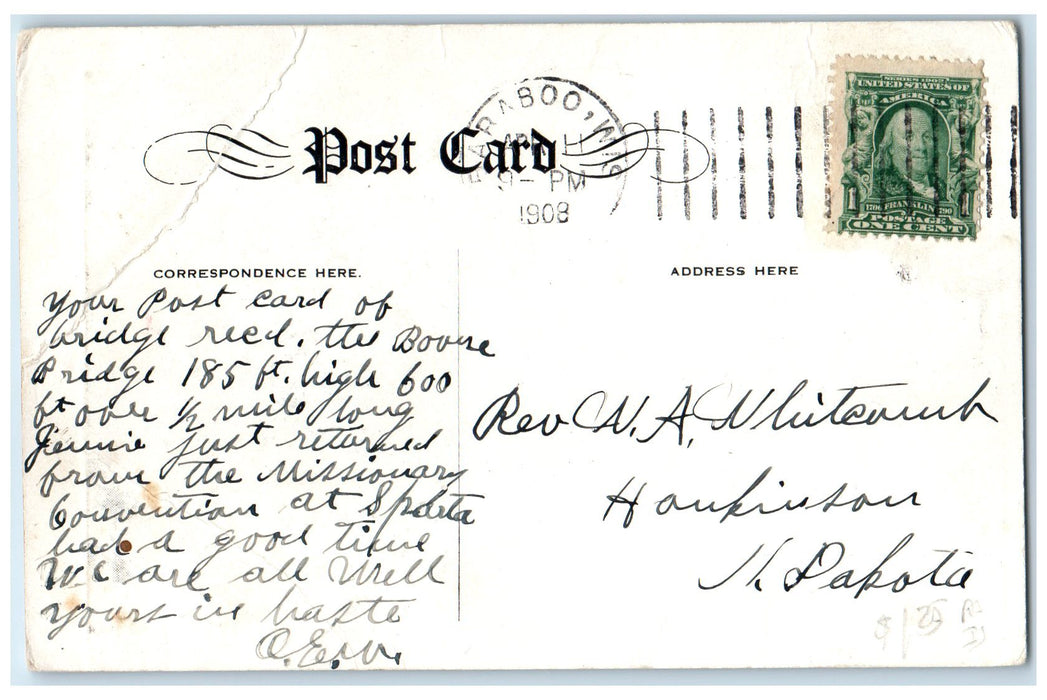 BARABOO, WIS
AP 11
9- PM
1908
SERIES 1902
UNITED STATES OF
AMERICA
1 1
1706 FRANKLIN 1790
POSTAGE
ONE CENT
Post Card
CORRESPONDENCE HERE.
Your Post card of
bridge recd. the Boone
Bridge 185 ft. high 600
ft over 1/2 mile long
Jennie just returned
from the Missionary
Convention at Sparta
had a good time
We are all Well
yours in haste
O.E.W.
ADDRESS HERE
Rev W. A. Whitcomb
Hankinson
N. Dakota
$1 25